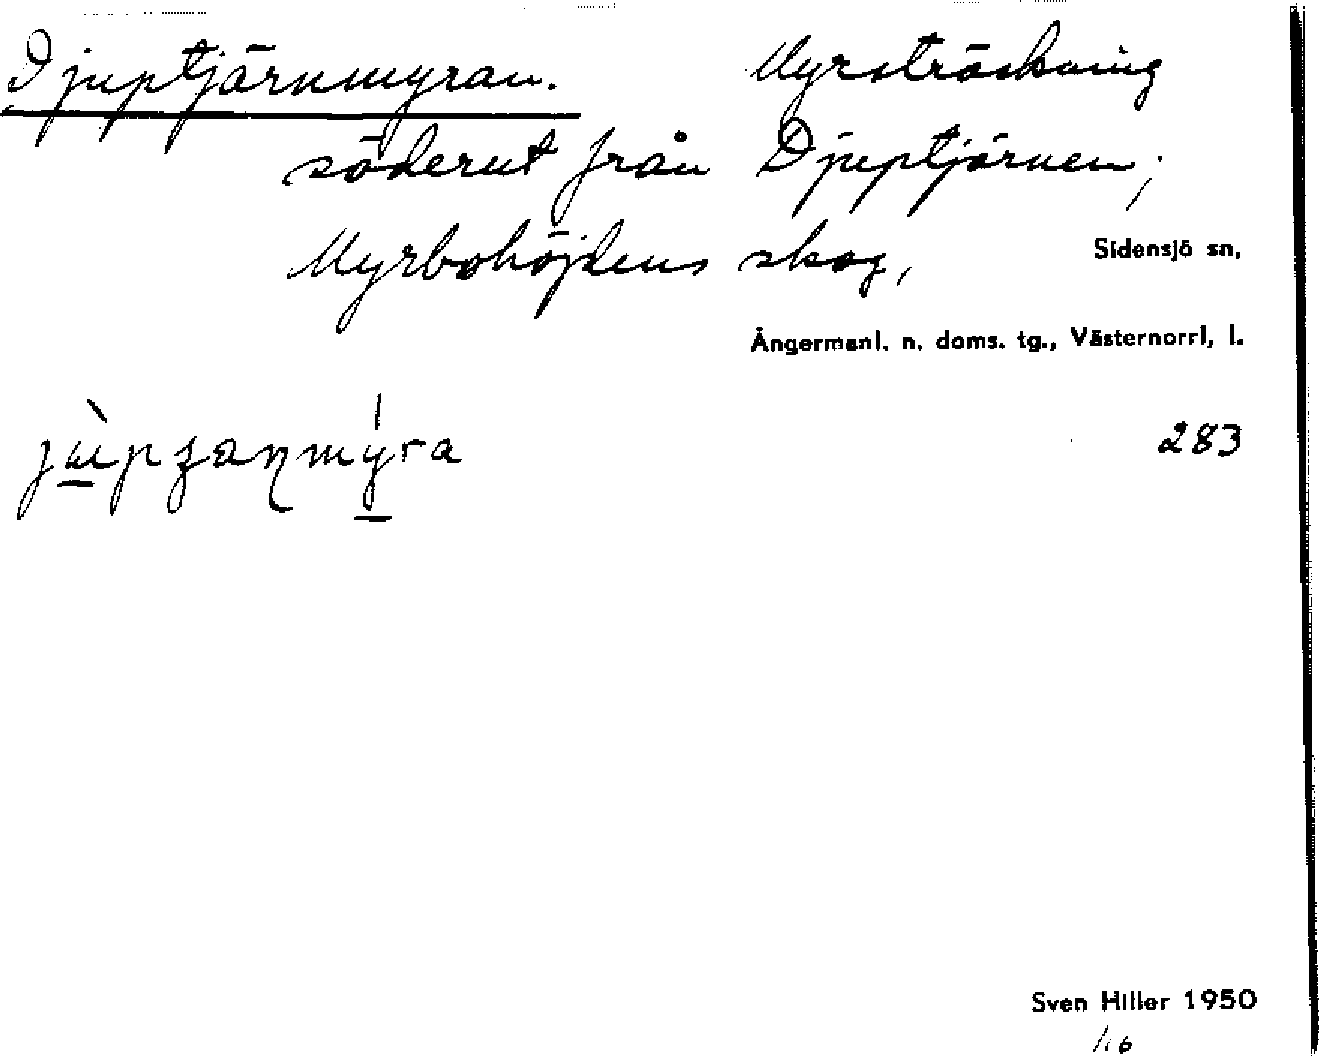 Djuptjärnmyran. Myrsträckning
söderut från Djuptjärnen;
Myrbohöjdens skog, Sidensjö sn,
Ångermanl. n. doms. tg., Västernorrl, l.
283
Sven Hiller 1950